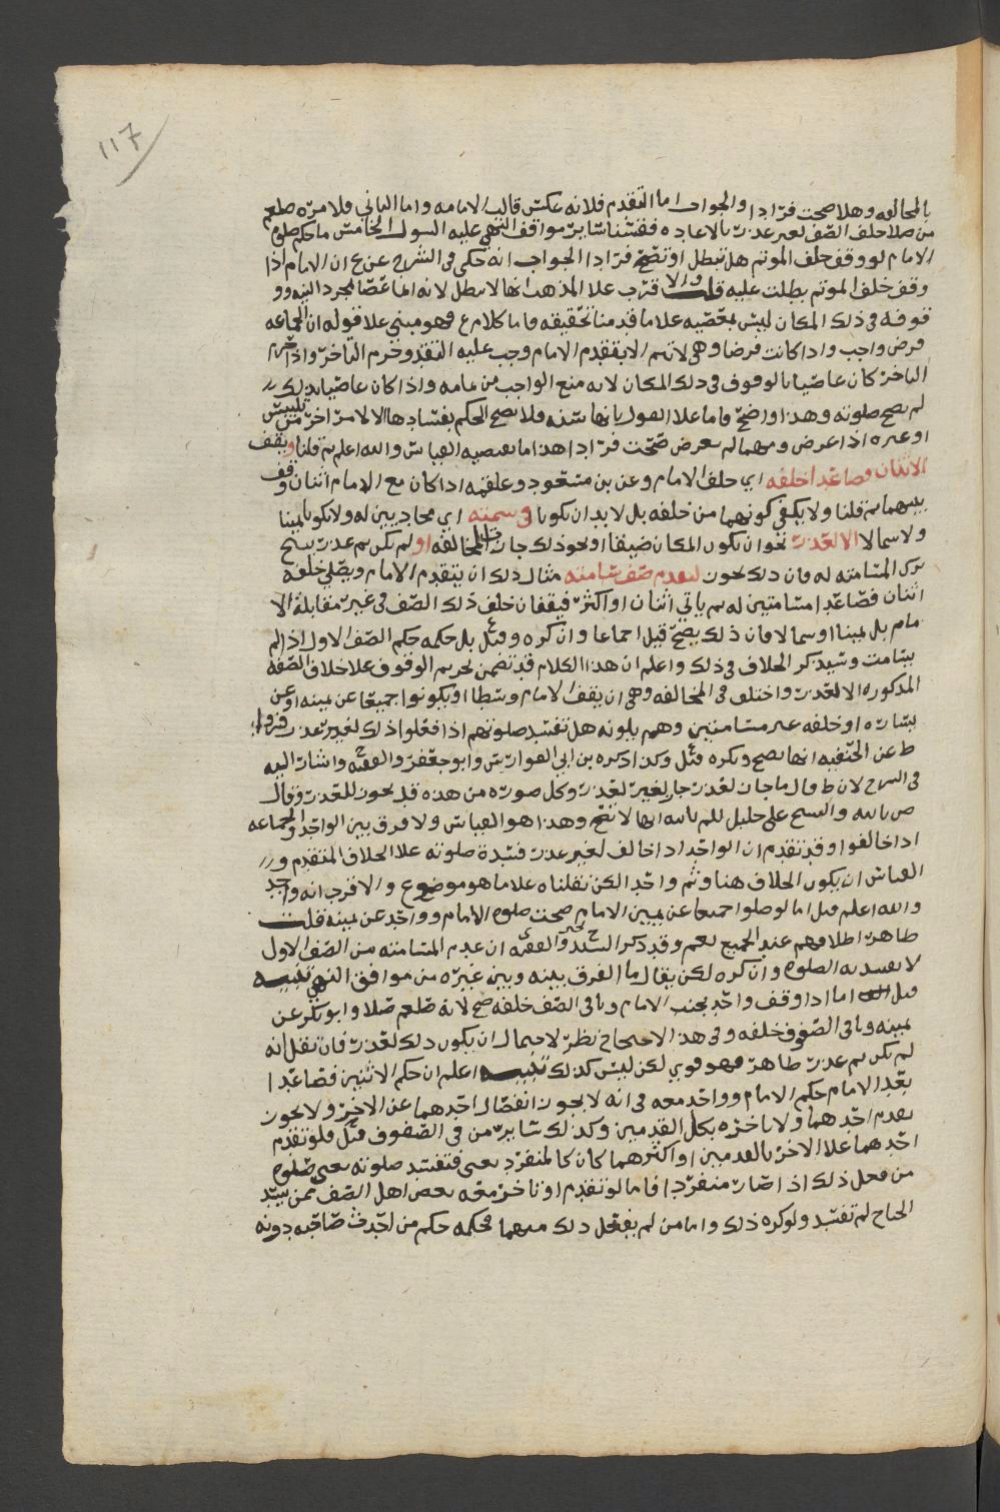 ١١٧
بالمخالفه وهلا صحت فرادا والجواب اما التقدم فلانه عكس قالب الامامه واما الثاني فلامره صلعم
من صلا خلف الصف لغير عذر بالاعاده فقسنا سائر مواقف النهي عليه السوال الخامس ما حكم صلوه
الامام لو وقف خلف الموتم هل تبطل او تصح فرادا الجواب انه حكى في الشرح عن ع ان الامام اذا
وقف خلف الموتم بطلت عليه قلت والاقرب علا المذهب انها لا تبطل لانه انما عصا بمجرد النيه وو
قوفه في ذلك المكان ليس بمعصيه علا ما قدمنا تحقيقه واما كلام ع فهو مبني علا قوله ان الجماعه
فرض واجب واذا كانت فرضا وهي لا تتم الا بتقدم الامام وجب عليه التقدم وحرم التاخر واذا حرم
التاخر كان عاصيا بالوقوف في ذلك المكان لانه منع الواجب من تمامه واذا كان عاصيا بذلك
لم تصح صلوته وهذا واضح واما علا القول بانها سنه فلا يصح الحكم بفسادها الا لامر اخر من تلبيس
او غيره اذا عرض ومهما لم يعرض صحت فرادا هذا ما يقتضيه القياس والله اعلم ثم قلنا ويقف
الاثنان فصاعدا خلفه اي خلف الامام وعن بن مسعود وعلقمه اذا كان مع الامام اثنان وقف
بينهما ثم قلنا ولا يكفي كونهما من خلفه بل لا بد ان يكونا في سمته اي محاذيين له ولا يكونا يمينا
ولا شمالا الا لعذر نحو ان يكون المكان ضيقا او نحو ذلك جازت المخالفه او لم يكن ثم عذر يبيح
ترك المسامته له فان ذلك يجوز لتقدم صف سامته مثال ذلك ان يتقدم الامام ويصلي خلفه
اثنان فصاعدا مسامتين له ثم ياتي اثنان او اكثر فيقفان خلف ذلك الصف في غير مقابلة الا
مام بل يمينا او شمالا فان ذلك يصح قيل اجماعا وان كره وقيل بل حكمه حكم الصف الاول اذا لم
يسامت وسيذكر الخلاف في ذلك واعلم ان هذا الكلام قد تضمن تحريم الوقوف علا خلاف الصفه
المذكوره الا لعذر واختلف في المخالفه وهي ان يقف الامام وسطا او يكونوا جميعا عن يمينه او عن
يساره او خلفه غير مسامتين وهم يلونه هل تفسد صلوتهم اذا فعلوا ذلك لغير عذر
ط عن الحنفيه انها تصح وتكره وكذا ذكره بن ابي الفوارس وابو جعفر والفقيه واشار اليه
في الشرح لان ط قال ما جاز لعذر جاز لغير لعذر وكل صوره من هذه قد يجوز للعذر وقال
ص بالله والشيخ علي خليل للم بالله انها لا تصح وهذا هو القياس ولا فرق بين الواحد والجماعه
اذا خالفوا وقد تقدم ان الواحد اذا خالف لغير عذر فسدة صلوته علا الخلاف المتقدم و
القياس ان يكون الخلاف هنا وثم واحد الكن نقلناه علا ما هو موضوع والاقرب انه واحد
والله اعلم قيل اما لو صلوا جميعا عن يمين الامام صحت صلوه الامام وواحد عن يمينه قلت
ظاهر اطلاقهم عند الجميع نعم وقد ذكر السيد ح والفقيه ان عدم المسامته من الصف الاول
لا يفسد به الصلوه وان كره لكن يقال ما الفرق بينه وبين غيره من مواقف النهي تنبيه
قيل اما اذا وقف واحد بجنب الامام وباقي الصف خلفه صح لانه صلعم صلا وابو بكر عن
يمينه وباقي الصفوف خلفه وفي هذا الاحتجاج نظر لاحتمال ان يكون ذلك لعذر فان نقل انه
لم يكن ثم عذر ظاهر فهو قوي لكن ليس كذلك تنبيه اعلم ان حكم الاثنين فصاعدا
بعد الامام حكم الامام وواحد معه في انه لا يجوز انفصال احدهما عن الاخر ولا يجوز
تقدم احدهما ولا تاخره بكل القدمين وكذلك سائر من في الصفوف قيل فلو تقدم
احدهما علا الاخر بالقدمين او اكثرهما كان كالمنفرد يعني فتفسد صلوته يعني صلوه
من فعل ذلك اذا صار منفردا فاما لو تقدم او تاخر معه بعض اهل الصف ممن يسد
الجناح لم تفسد ولو كره ذلك واما من لم يفعل ذلك منهما فحكمه حكم من احدث صاحبه دونه